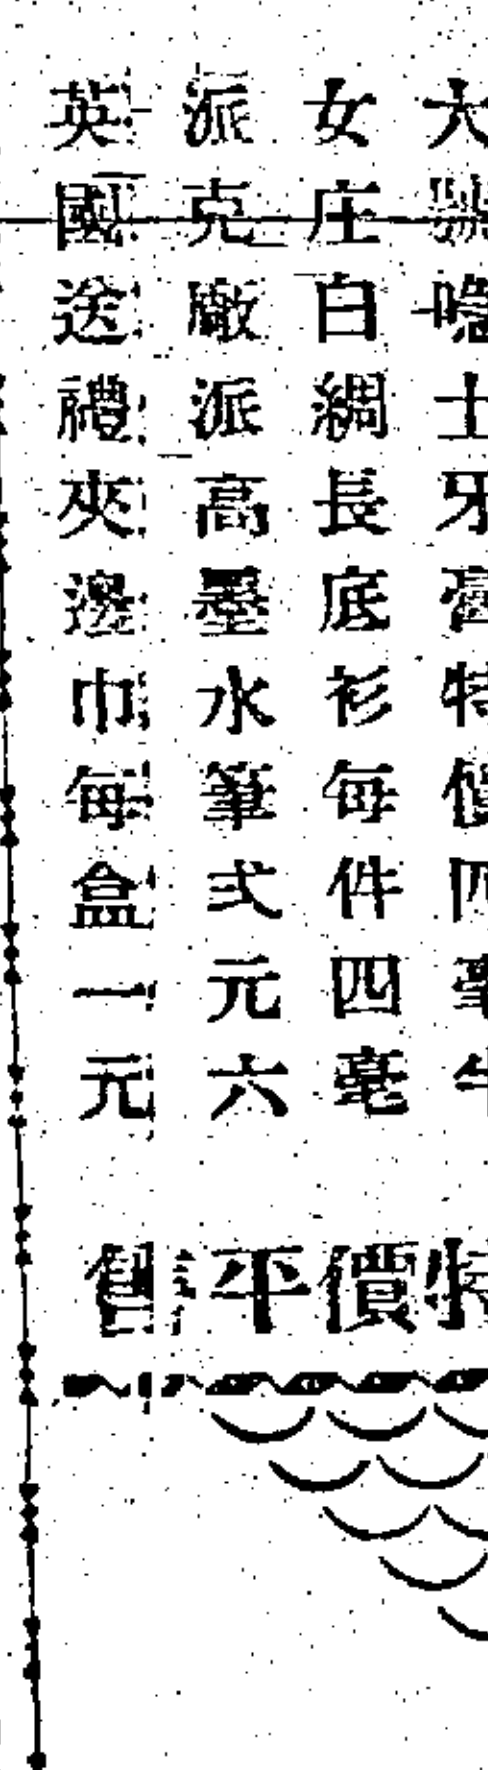 大號喼士牙膏特價四毫半
女庄白綢長底衫每件四毫
派克廠派高墨水筆弍元六
英國送禮夾邊巾每盒一元
特價平售